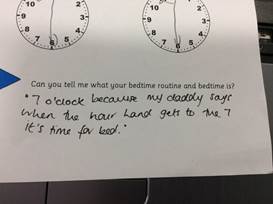 10 2 10 2
9 3 9 3
8 4 8 4
7 6 5 7 6 5
Can you tell me what your bedtime routine and bedtime is?
"7 o'clock because my daddy says
when the hour hand gets to the 7
it's time for bed."